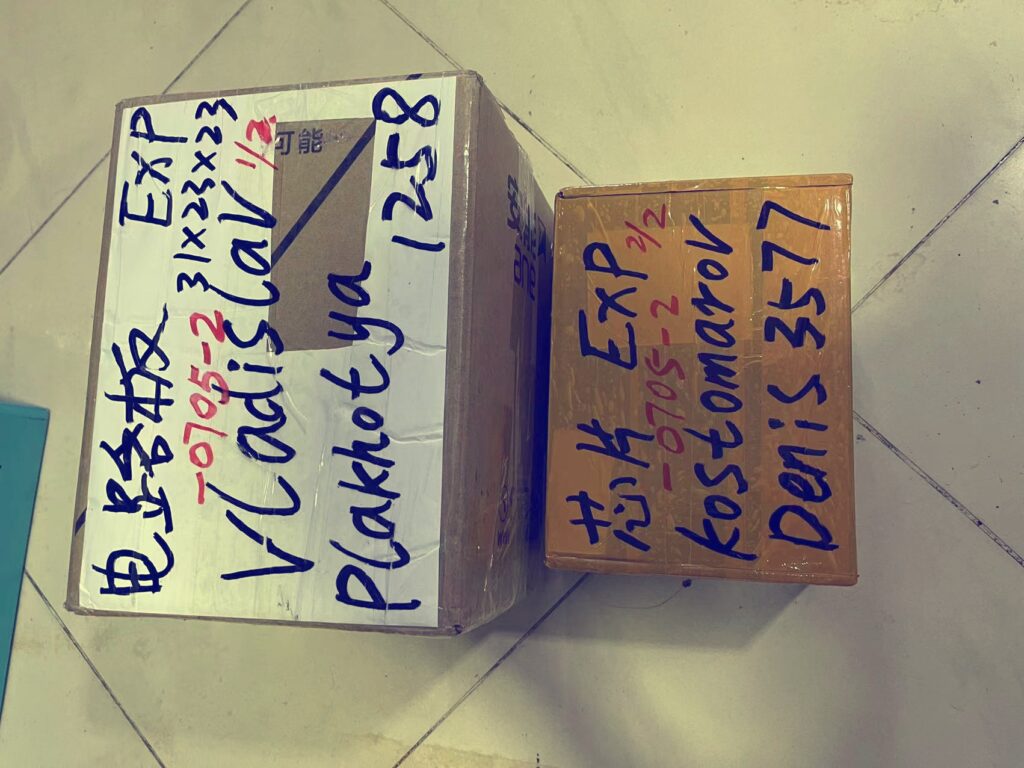 电路板 EXP
-0705-2 31x23x23
Vladislav 1/2
可能
Plakhotya 1258
芯片 EXP 2/2
-0705-2
kostomarov
Denis 3577